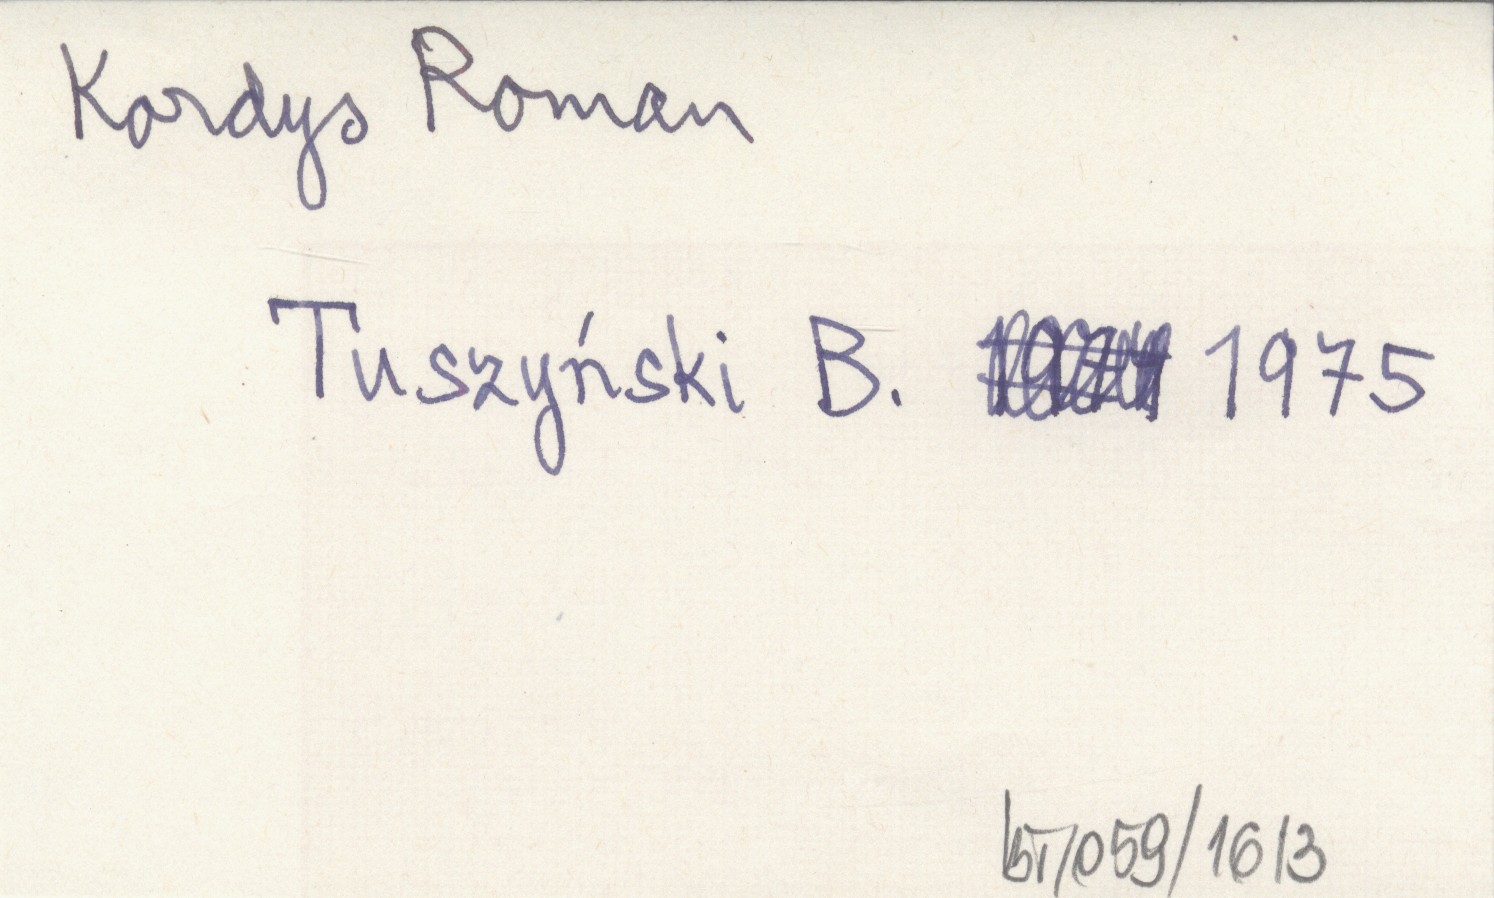 Kordys Roman
Tuszyński B. 1975
BT/059/1613